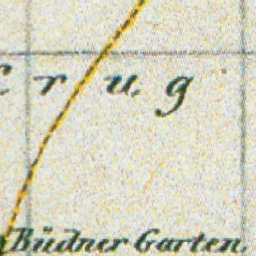 rug
Büdner Garten.